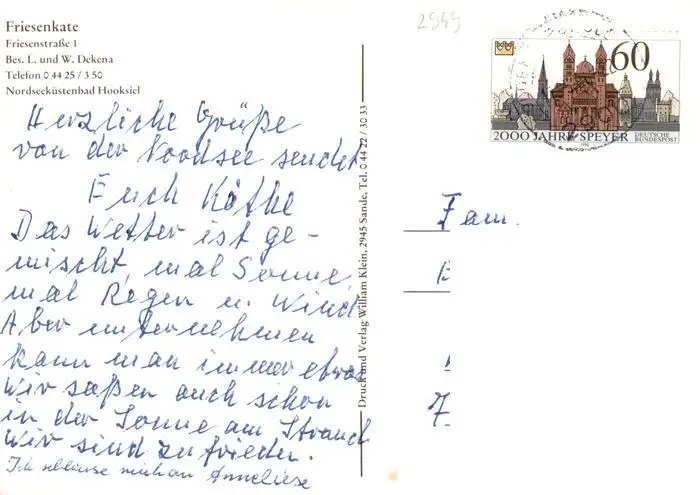 Friesenkate
Friesenstraße 1
Bes. L. und W. Dekena
Telefon 0 44 25 / 3 50
Nordseeküstenbad Hooksiel
Herzliche Grüße
von der Noordsee sendet
Euch Käthe
Das Wetter ist ge-
mischt, mal Sonne,
mal Regen u. Wind
Aber unternehmen
kann man immer etwas
Wir saßen auch schon
in der Sonne am Strand
Wir sind zufrieden.
Ich schliesse mich an Anneliese
Druck und Verlag William Klein, 2945 Sande, Tel. 0 44 22 / 30 33
2949
60
2000 JAHRE SPEYER
DEUTSCHE
BUNDESPOST
1990
Fam.